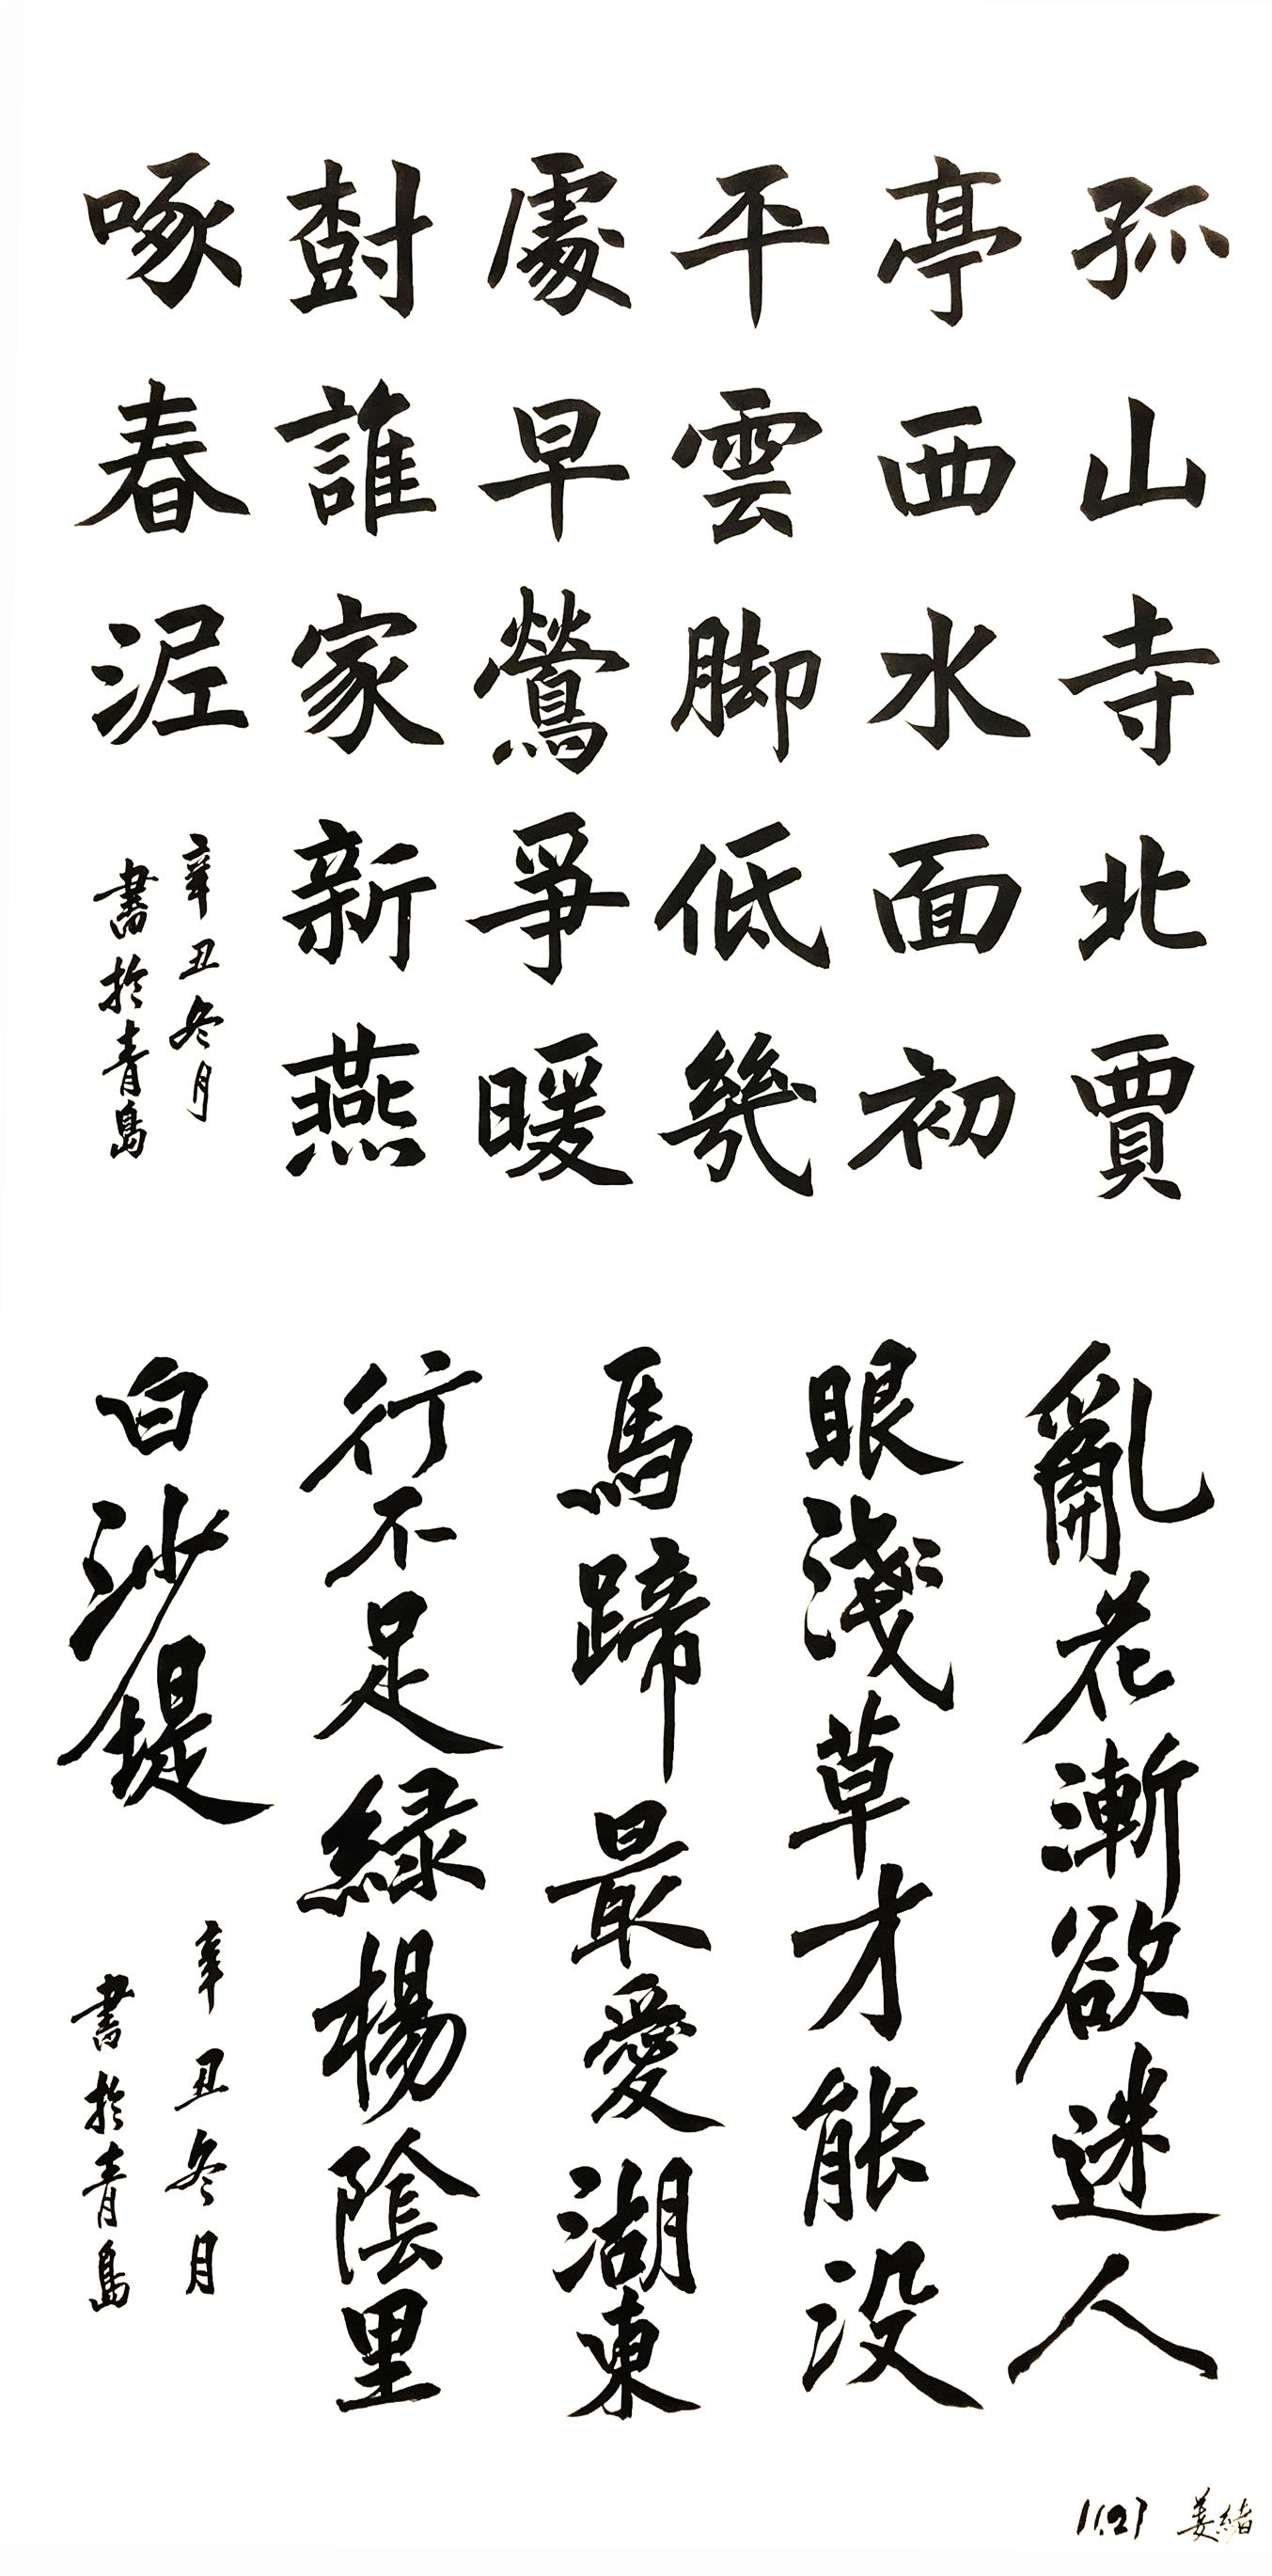 孤山寺北賈
亭西水面初
平雲脚低幾
處早鶯爭暖
樹誰家新燕
啄春泥
辛丑冬月
書於青島
亂花漸欲迷人
眼淺草才能没
馬蹄最愛湖東
行不足緑楊陰里
白沙堤
辛丑冬月
書於青島
11.27 姜緒